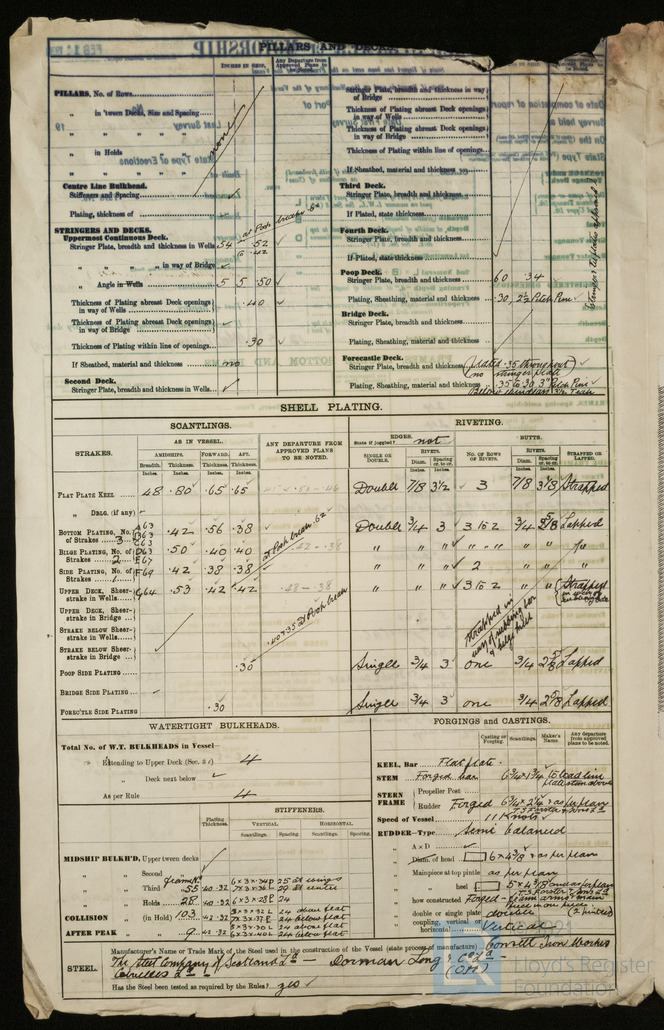 PILLARS AND DECKS.
INCHES IN SHIP.
Any Departure from Approved Plans to be Noted.
PILLARS, No. of Rows
" in 'tween Decks, Size and Spacing
" " " "
" in Holds " "
" " " "
none
Centre Line Bulkhead.
Stiffeners and Spacing
Plating, thickness of
STRINGERS AND DECKS.
Uppermost Continuous Deck.
Stringer Plate, breadth and thickness in Wells 54 .52
" " " " in way of Bridge
" Angle in Wells 5 5 .50
Thickness of Plating abreast Deck openings in way of Wells .40
Thickness of Plating abreast Deck openings in way of Bridge
Thickness of Plating within line of openings .30
If Sheathed, material and thickness no
Second Deck.
Stringer Plate, breadth and thickness in Wells
Stringer Plate, breadth and thickness in way of Bridge
Thickness of Plating abreast Deck openings in way of Wells
Thickness of Plating abreast Deck openings in way of Bridge
Thickness of Plating within line of openings
If Sheathed, material and thickness
Third Deck.
Stringer Plate, breadth and thickness
If Plated, state thickness
Fourth Deck.
Stringer Plate, breadth and thickness
If Plated, state thickness
Poop Deck.
Stringer Plate, breadth and thickness 60 .34
Plating, Sheathing, material and thickness .30, 2½ Pitch Pine
Bridge Deck.
Stringer Plate, breadth and thickness
Plating, Sheathing, material and thickness
Forecastle Deck.
Stringer Plate, breadth and thickness (Plated .35 throughout no stringer plate)
Plating, Sheathing, material and thickness .35 to .30 3" Pitch Pine
SHELL PLATING.
SCANTLINGS.
RIVETING.
STRAKES.
AS IN VESSEL.
ANY DEPARTURE FROM APPROVED PLANS TO BE NOTED.
AMIDSHIPS. FORWARD. AFT.
Breadth. Thickness. Thickness. Thickness.
Inches. Inches. Inches. Inches.
EDGES.
State if joggled? not
BUTTS.
SINGLE OR DOUBLE.
RIVETS.
Diam. Spacing cr. to cr.
No. OF ROWS OF RIVETS.
RIVETS.
Diam. Spacing cr. to cr.
STRAPPED OR LAPPED.
FLAT PLATE KEEL 48 .80 .65 .65 Double 7/8 3½ 3 7/8 3⅛ Strapped
" DBLG. (if any)
BOTTOM PLATING, No. of Strakes 3 A63 B63 C63 .42 .56 .38 at Poop break .62 Double 3/4 3 3 to 2 3/4 Lapped
BILGE PLATING, No. of Strakes 2 D63 E67 .50 .40 .40 " " " " " " "
SIDE PLATING, No. of Strakes 1 F69 .42 .38 .38 " " " 2 " " "
UPPER DECK, Sheer-strake in Wells G64 .53 .42 .42 " " " 3 to 2 " " Strapped
UPPER DECK, Sheer-strake in Bridge
STRAKE BELOW Sheer-strake in Wells
STRAKE BELOW Sheer-strake in Bridge
Strapped in way of rubbing bar & bilge keel
POOP SIDE PLATING .30 Single 3/4 3 one 3/4 2⅝ Lapped
BRIDGE SIDE PLATING
FORECTLE SIDE PLATING .30 Single 3/4 3 one 3/4 2⅝ Lapped
WATERTIGHT BULKHEADS.
Total No. of W.T. BULKHEADS in Vessel
Extending to Upper Deck (Sec. 3 c) 4
" Deck next below
As per Rule 4
Plating Thickness.
STIFFENERS.
VERTICAL HORIZONTAL
Scantlings. Spacing Scantlings. Spacing.
MIDSHIP BULKH'D, Upper tween decks
" " Second
" " Third 55 .40-.32
" " Holds 28 .40-.32 24
COLLISION " (in Hold) 103 .42-.32 24 above flat
24 below flat
AFTER PEAK " 9 .42-.32 24 above flat
24 below flat
FORGINGS and CASTINGS.
Casting or Forging. Scantlings. Maker's Name. Any departure from approved plans to be noted.
KEEL, Bar Flat plate.
STEM Forged bar 6¾ x 1¾ to load line plate stem above
STERN FRAME Propeller Post
Rudder Forged as per plan
Speed of Vessel 11 Knots
RUDDER—Type Semi balanced
" A x D
" Diam. of head 6 x 4⅜ as per plan
Mainpiece at top pintle as per plan
" heel 5 x 4⅜
how constructed Forged
double or single plate double (2 pintles)
coupling, vertical or horizontal Vertical
STEEL. Manufacturer's Name or Trade Mark, of the Steel used in the construction of the Vessel (state process of manufacture) Consett Iron Works
The Steel Company of Scotland Ld — Dorman Long & Coy Ld —
Colvilles Ld — (O.H.)
Has the Steel been tested as required by the Rules? yes
Lloyd's Register
Foundation